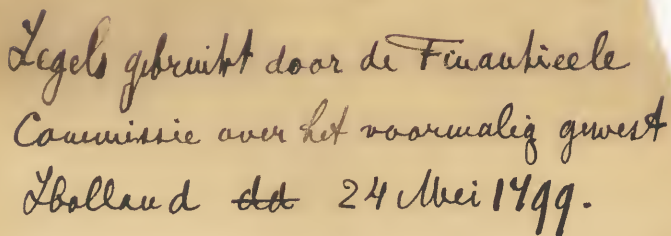 Zegels gebruikt door de Finantieele
Commissie over het voormalig gewest
Holland dd 24 Mei 1799.